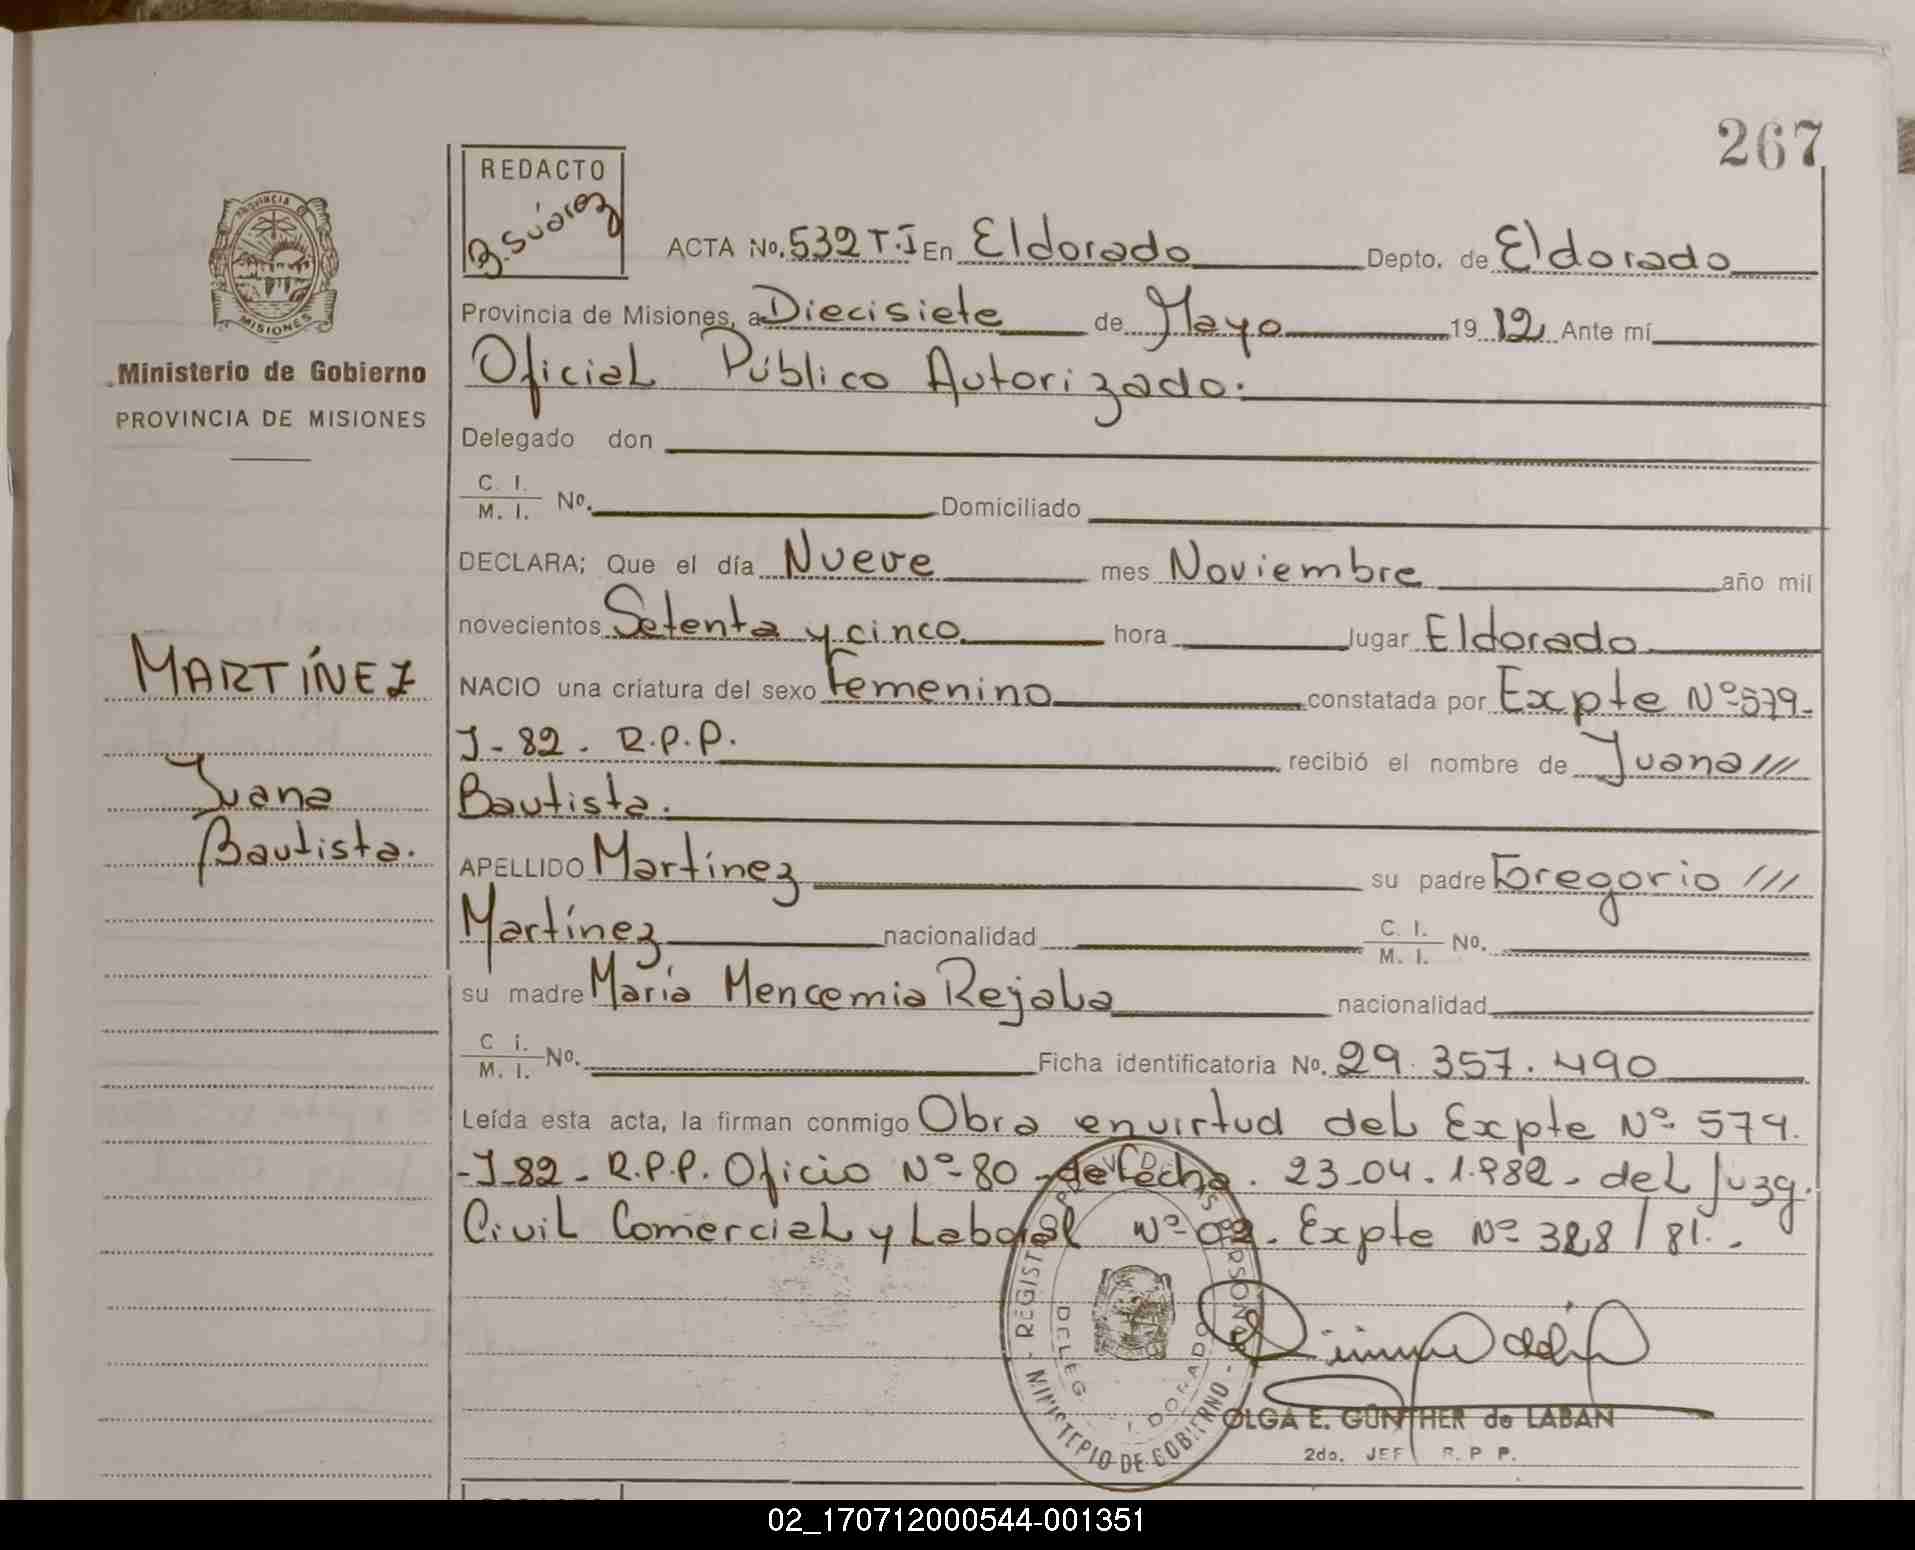 267
REDACTO
B. Suárez
ACTA No. 532 T.I En Eldorado Depto. de Eldorado
Provincia de Misiones, a Diecisiete de Mayo 19 12 Ante mí
Oficial Público Autorizado.
Delegado don
C. I.
M. I. No. Domiciliado
DECLARA; Que el día Nueve mes Noviembre año mil
novecientos Setenta y cinco hora lugar Eldorado
NACIO una criatura del sexo Femenino constatada por Expte Nº 579-
J-82. R.P.P. recibió el nombre de Juana ///
Bautista.
APELLIDO Martínez su padre Gregorio ///
Martínez nacionalidad C. I.
M. I. No.
su madre María Mencemia Rejala nacionalidad
C i.
M. I. No. Ficha identificatoria No. 29.357.490
Leída esta acta, la firman conmigo Obra en virtud del Expte Nº 579.
-J-82- R.P.P. Oficio Nº 80 de fecha. 23-04.1.982. del Juzg.
Civil Comercial y Laboral Nº 02. Expte Nº 328/81.-
PROVINCIA
MISIONES
Ministerio de Gobierno
PROVINCIA DE MISIONES
MARTÍNEZ
Juana
Bautista.
MINISTERIO DE GOBIERNO
OLGA E. GÜNTHER de LABAN
2do. JEF R. P. P.
02_170712000544-001351